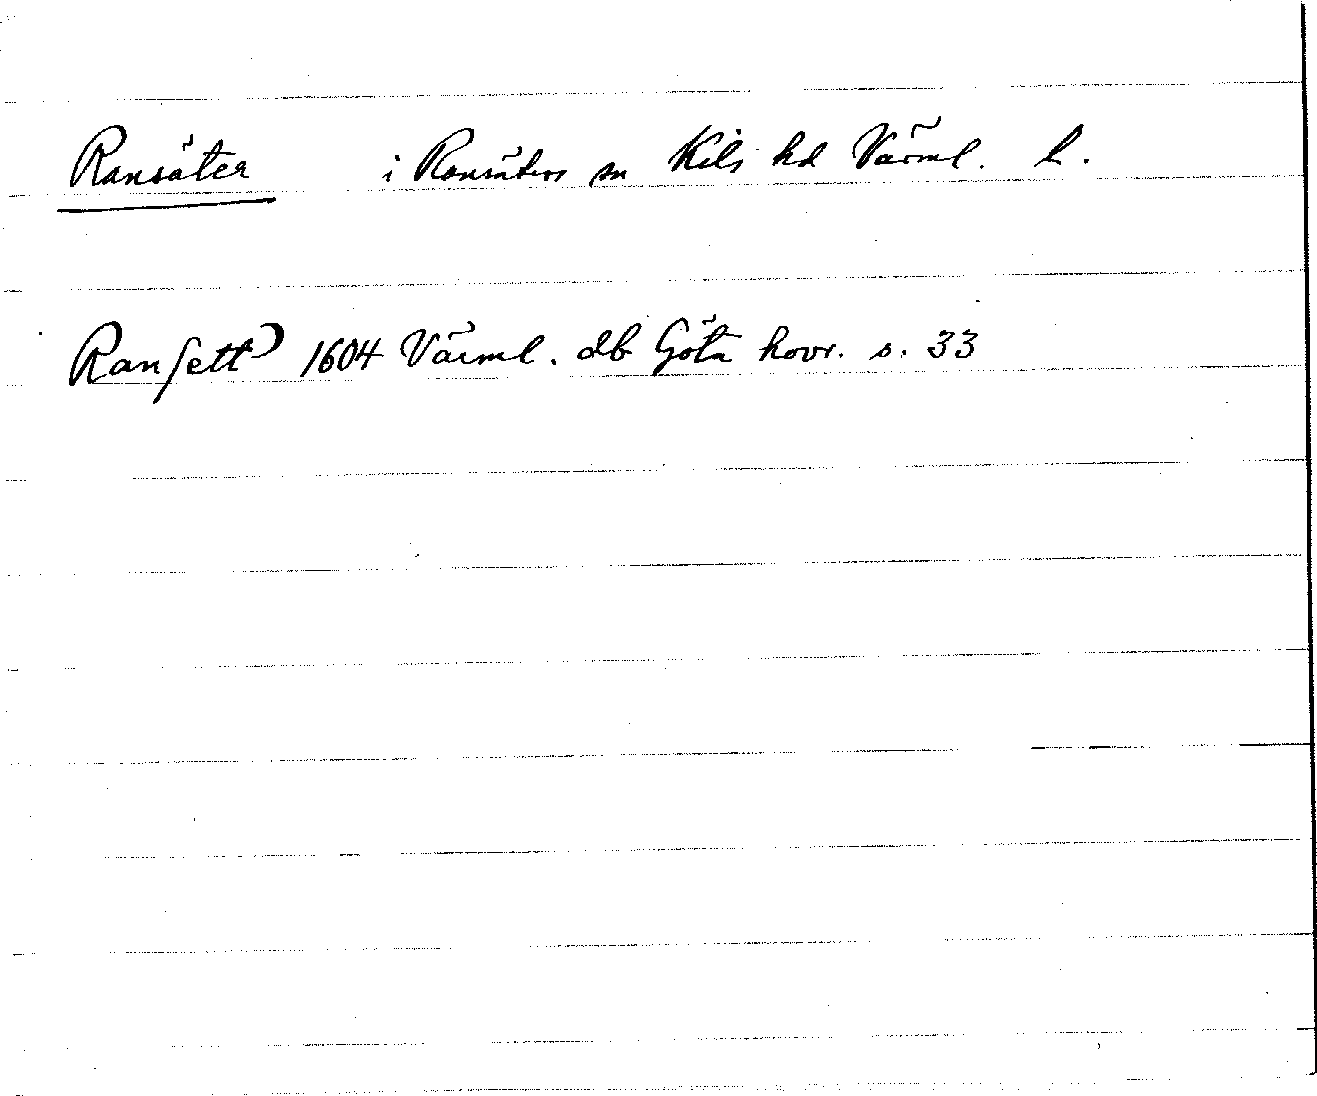 Ransäter i Ransäters sn Kils hd Värml. l.
Ranſett 1604 Värml. db Göta hovr. s. 33